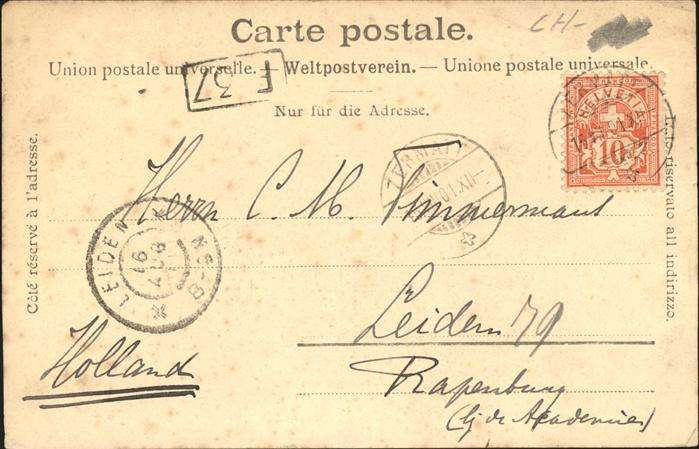 CH-
Carte postale.
Union postale universelle. — Weltpostverein. — Unione postale universale.
F 37
Nur für die Adresse.
Côté réservé à l'adresse.
Lato riservato all indirizzo.
HELVETIA
10
ZERMATT
XII
LEIDEN
16 AUG
8-9N
Herrn C. M.
Leiden 79
Rapenburg
(bij de Academie)
Holland